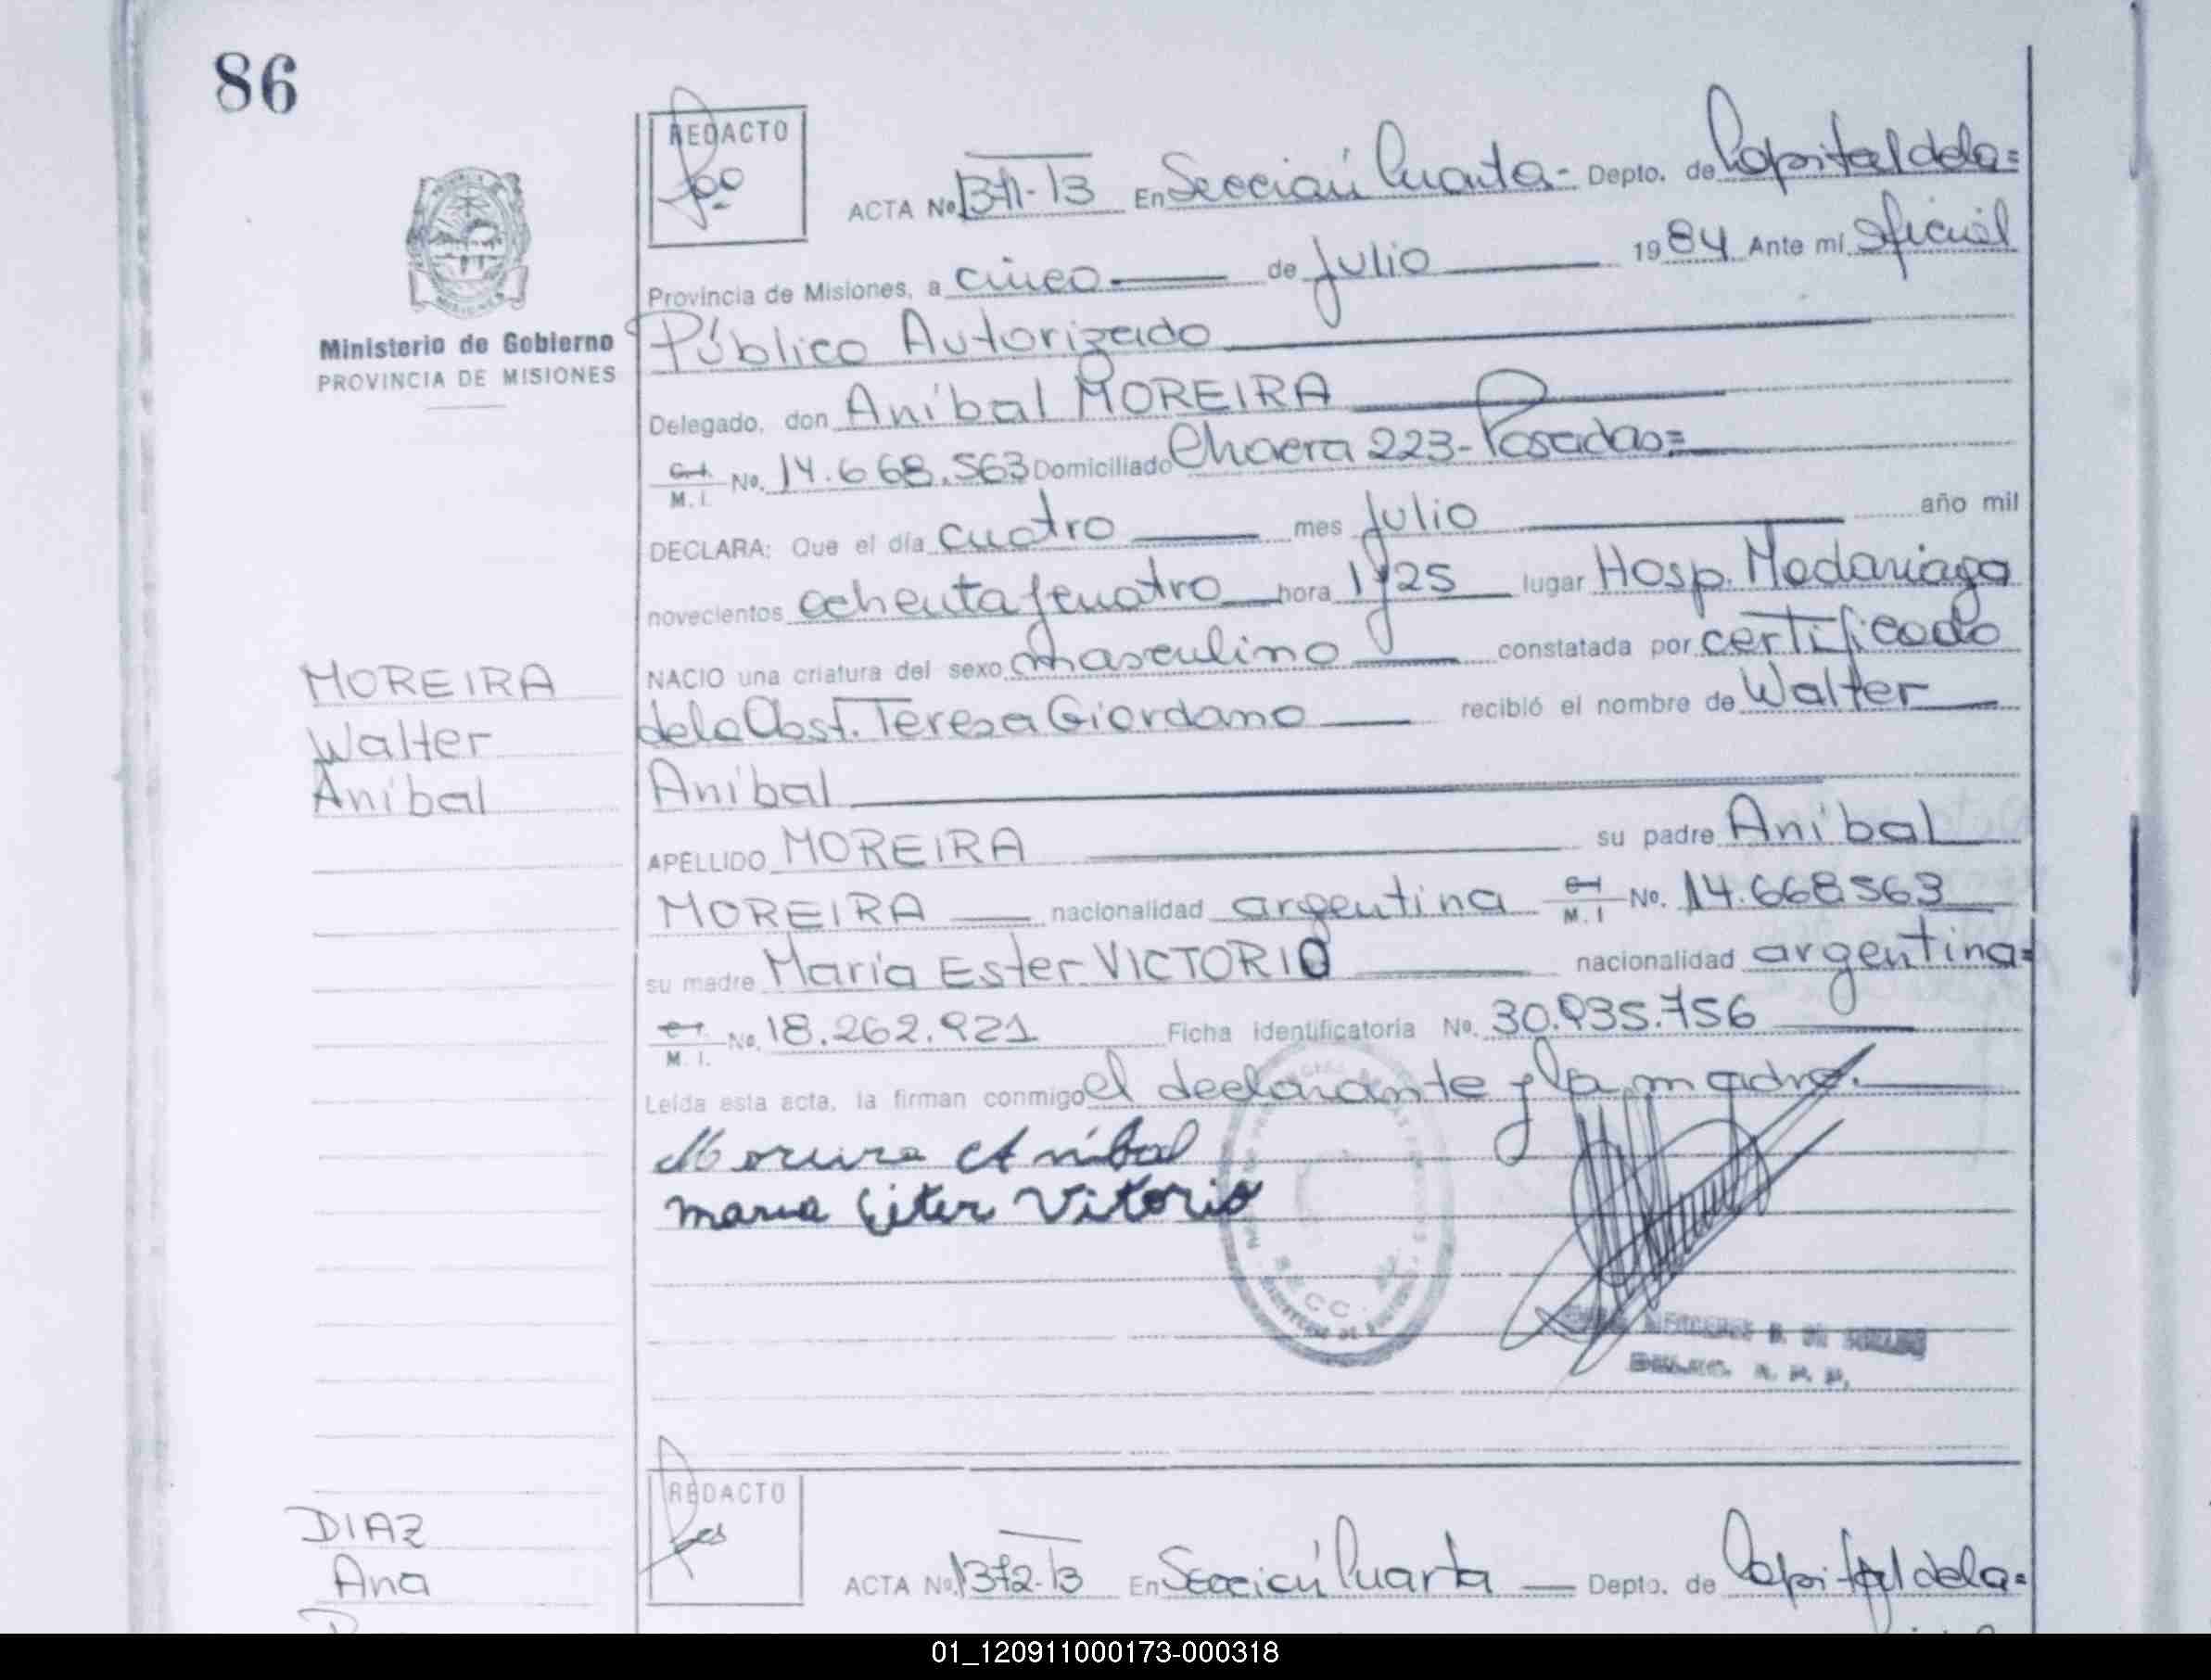 86
REDACTO
ACTA No. 1371-T3 En Sección Cuarta- Depto. de Capital dela=
Provincia de Misiones, a cinco de Julio 1984 Ante mí Oficial
Público Autorizado
Ministerio de Gobierno
PROVINCIA DE MISIONES
Delegado, don Aníbal MOREIRA
C.I. M.I. No. 14.668.563 Domiciliado Chacra 223-Posadas=
DECLARA: Que el día cuatro mes Julio año mil
novecientos ochenta y cuatro hora 1y25 lugar Hosp. Madariaga
NACIO una criatura del sexo masculino constatada por certificado
MOREIRA
Walter
Aníbal
dela Obst. Teresa Giordano recibió el nombre de Walter
Aníbal
APELLIDO MOREIRA su padre Aníbal
MOREIRA nacionalidad argentina C.I. M.I No. 14.668563
su madre María Ester VICTORIO nacionalidad argentina=
C.I. M.I. No. 18.262.921 Ficha identificatoria No. 30.935.756
Leída esta acta, la firman conmigo el declarante y la madre.
Moreira Anibal
maria Ester Vitorio
DIAZ
Ana
REDACTO
ACTA No. 1372-T3 En Sección Cuarta Depto. de Capital dela=
01_120911000173-000318